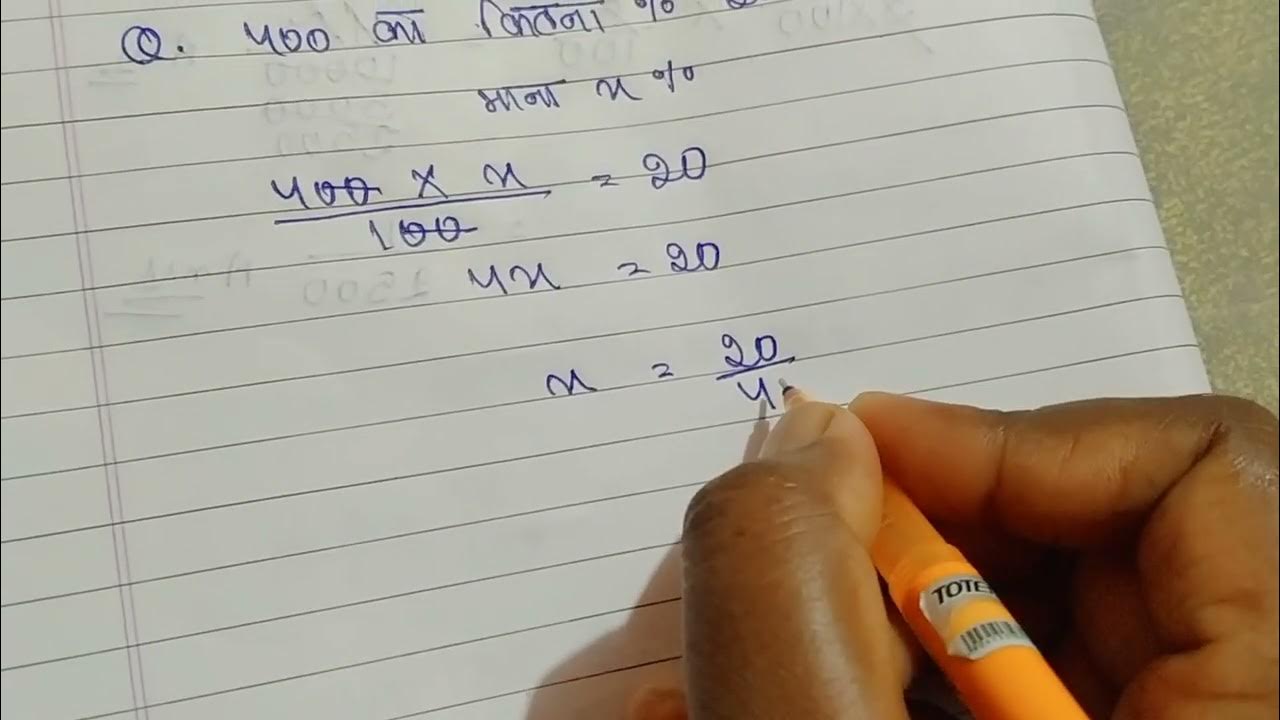 Q. 400 का कितना %
माना x %
400 × x / 100 = 20
4x = 20
x = 20 / 4
TOTE